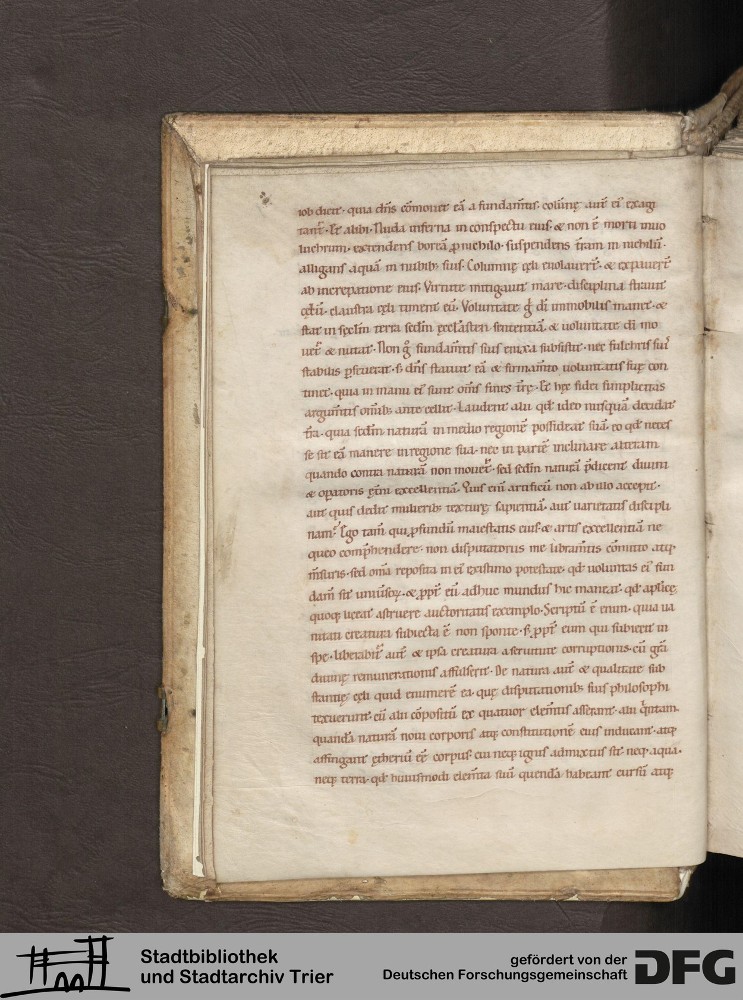 iob dicit · quia dñs cōmouet eā a fundam̄tis · colūnę aut̄ ei᷒ exagi
tant᷒ · Et alibi · Nuda inferna in conspectu eius · & non ē morti inuo
lucrum · extendens boreā ꝓ nichilo · suspendens t̄ram in nichilū ·
alligans aquā in nubib; suis · Columnę cęli euolauer̄t · & expauer̄t
ab increpatione eius · Virtute mitigauit mare · disciplina strauit
cętū · claustra cęli timent eū · Voluntate g̊ dī immobilis manet · &
stat in sęclm̄ terra scdm̄ ęccl̄asten sententiā · & uoluntate dī mo
uet᷒ & nutat · Non g̊ fundam̄tis suis enixa subsistit · nec fulchris sui᷒
stabilis ꝑseuerat · s; dn̄s statuit eā & firmam̄to uoluntatis suę con
tinet · quia in manu ei᷒ sunt om̄s fines t̄rę · Et hęc fidei simplicitas
argum̄tis om̄ib; antecellit · Laudent alii qđ ideo nusquā decidat
t̄ra · quia scdm̄ naturā in medio regionē possideat suā · eo qđ neces
se sit eā manere in regione sua · nec in partē inclinare alteram
quando contra naturā non mouet᷒ · sed scdm̄ naturā p̄dicent diuini
& oꝑatoris ęt̄ni excellentiā · Quis eni᷒ artificū non ab illo accepit ·
aut quis dedit mulierib; texturę sapientiā · aut uarietatis discipli
nam? Ego tam̄ qui ꝓfundū maiestatis eius · & artis excellentiā ne
queo comp̄hendere · non disputatoriis me libram̄tis cōmitto atq;
m̄suris · sed om̄a reposita in ei᷒ existimo potestate · qđ uoluntas ei᷒ fun
dam̄ sit uniuersor̄ · & ꝓpt̄ eū adhuc mundus hic maneat · qđ aplīcę
quoq; liceat astruere auctoritatis exemplo · Scriptū ē enim · quia ua
nitati creatura subiecta ē · non sponte · s; ꝓpt̄ eum qui subiecit in
spe · liberabit᷒ aut̄ & ipsa creatura a seruitute corruptionis · cū gr̄a
diuinę remunerationis affulserit · De natura aut̄ & qualitate sub
stantię cęli quid enumerē ea quę disputationib; suis philosophi
texuerunt · cū alii cōpositū ex quatuor elem̄tis asserant · alii q̇ntam
quandā naturā noui corporis atq; constitutionē eius inducant · atq;
affingant ętheriū ēē corpus · cui neq; ignis admixtus sit · neq; aqua ·
neq; terra · qđ huiusmodi elem̄ta suū quendā habeant cursū atq;
Stadtbibliothek
und Stadtarchiv Trier
gefördert von der
Deutschen Forschungsgemeinschaft
DFG